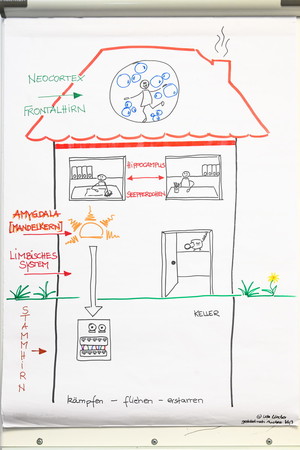 NEOCORTEX
FRONTALHIRN
HIPPOCAMPUS
SEEPFERDCHEN
AMYGDALA
[MANDELKERN]
LIMBISCHES
SYSTEM
STAMMHIRN
KELLER
kämpfen – fliehen – erstarren